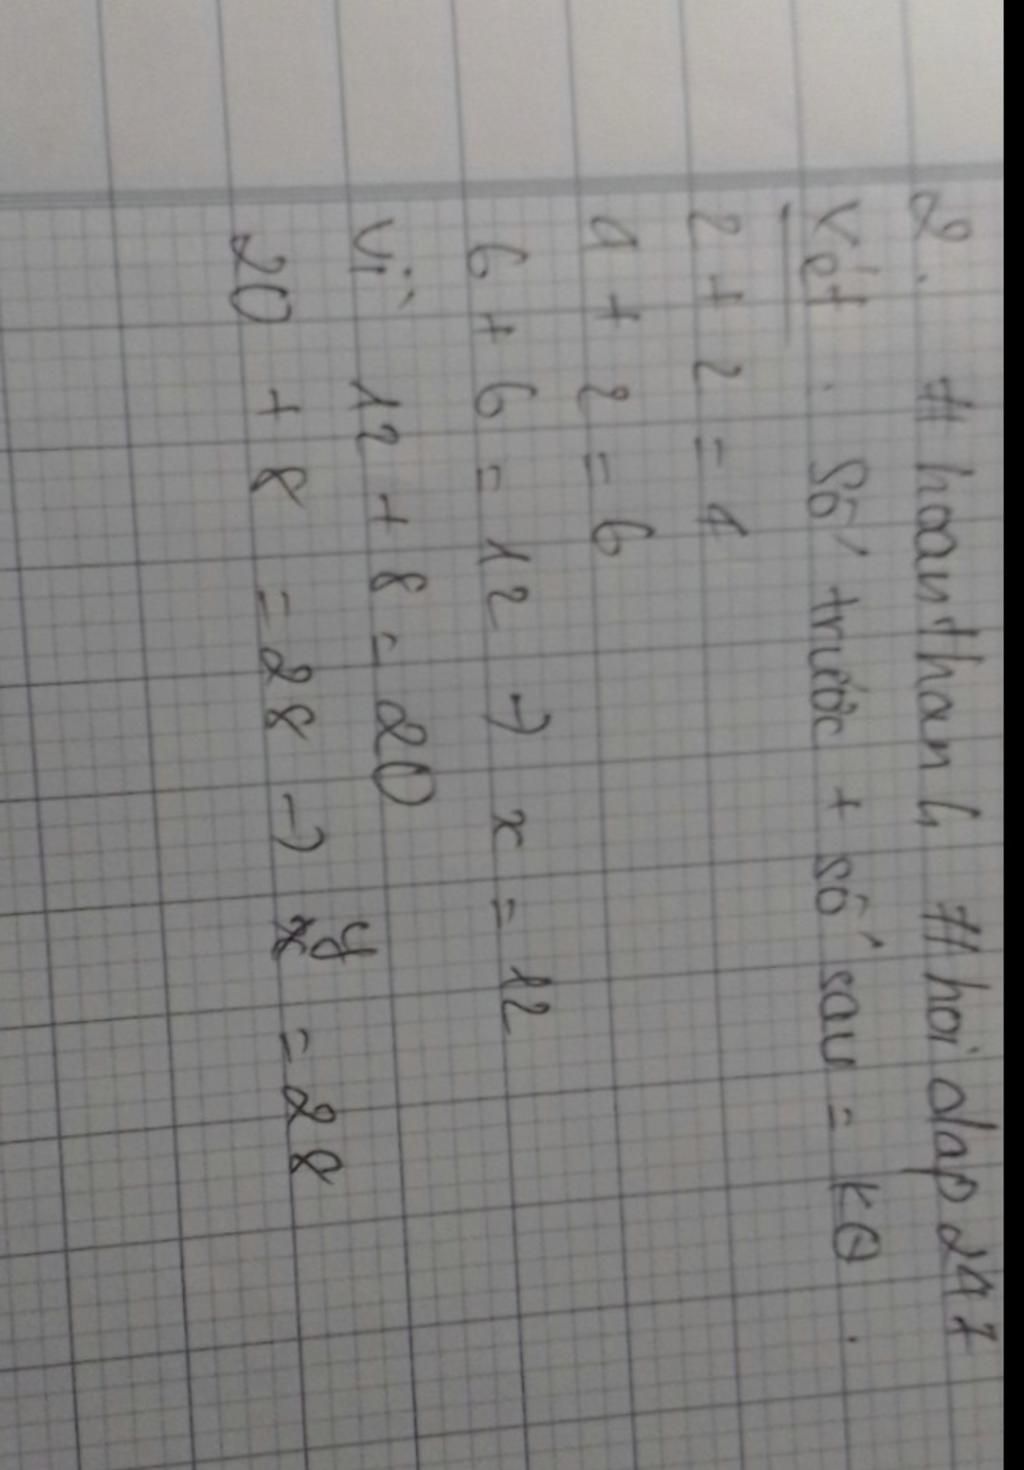 2. # hoanthanh # hoidap247
Xét : Số trước + số sau = KQ .
2 + 2 = 4
4 + 2 = 6
6 + 6 = 12 → x = 12
Vì 12 + 8 = 20
20 + 8 = 28 → y = 28